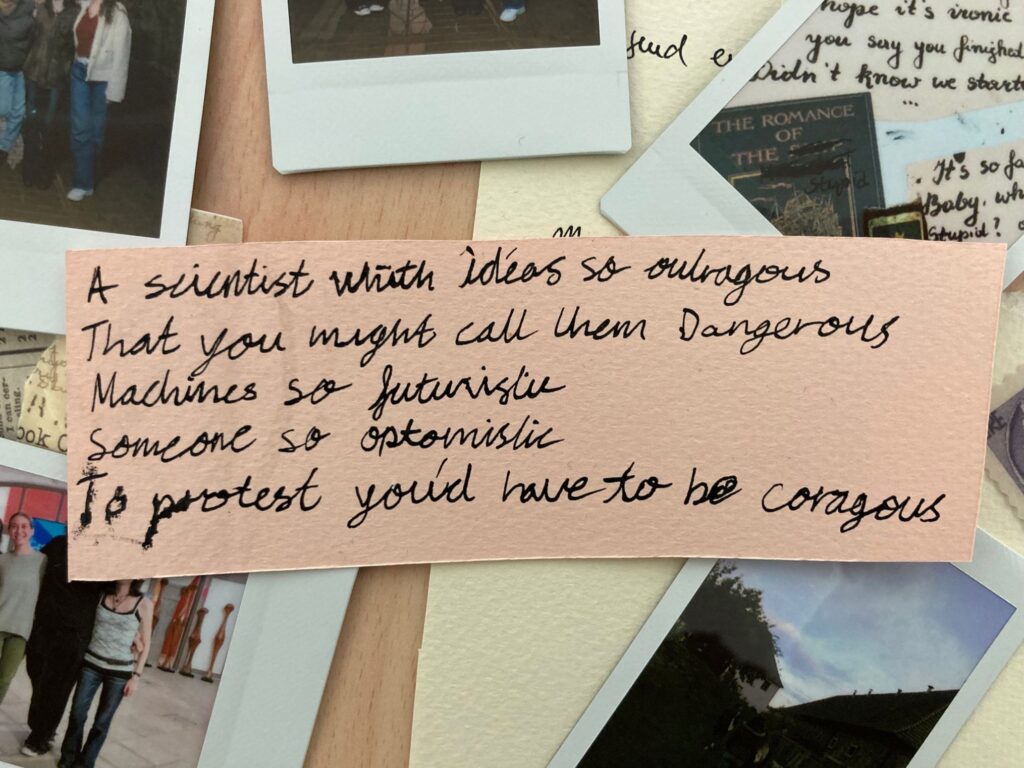 find
hope it's ironic
you say you finished
Didn't know we start
...
THE ROMANCE
OF
THE
Stupid
It's so fa
Baby, wh
Stupid?
A scientist with ideas so outragous
That you might call them Dangerous
Machines so futuristic
Someone so optomistic
To protest you'd have to be coragous
I can cer-
ling.
ook